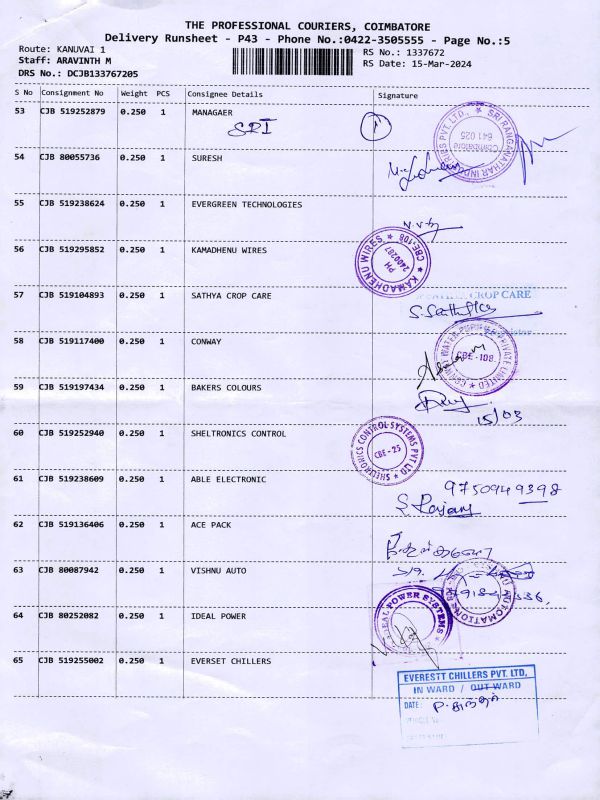 THE PROFESSIONAL COURIERS, COIMBATORE
Delivery Runsheet - P43 - Phone No.:0422-3505555 - Page No.:5
Route: KANUVAI 1
RS No.: 1337672
Staff: ARAVINTH M
RS Date: 15-Mar-2024
DRS No.: DCJB133767205
S No Consignment No Weight PCS Consignee Details Signature
53 CJB 519252879 0.250 1 MANAGAER
SRI 1
SRI RANGANATHAR
641 025
54 CJB 80055736 0.250 1 SURESH
55 CJB 519238624 0.250 1 EVERGREEN TECHNOLOGIES
56 CJB 519295852 0.250 1 KAMADHENU WIRES
KAMADHENU WIRES CBE-108
PH
2400287
57 CJB 519104893 0.250 1 SATHYA CROP CARE
CROP CARE
58 CJB 519117400 0.250 1 CONWAY
PRIVATE LIMITED
CBE-108
59 CJB 519197434 0.250 1 BAKERS COLOURS
15/03
60 CJB 519252940 0.250 1 SHELTRONICS CONTROL
SHELTRONICS CONTROL SYSTEMS PVT LTD
CBE-25
61 CJB 519238609 0.250 1 ABLE ELECTRONIC
9750949398
62 CJB 519136406 0.250 1 ACE PACK
63 CJB 80087942 0.250 1 VISHNU AUTO
AUTOMATIONS
64 CJB 80252082 0.250 1 IDEAL POWER
IDEAL POWER SYSTEMS
65 CJB 519255002 0.250 1 EVERSET CHILLERS
EVERESTT CHILLERS PVT. LTD,
IN WARD / OUT WARD
DATE: